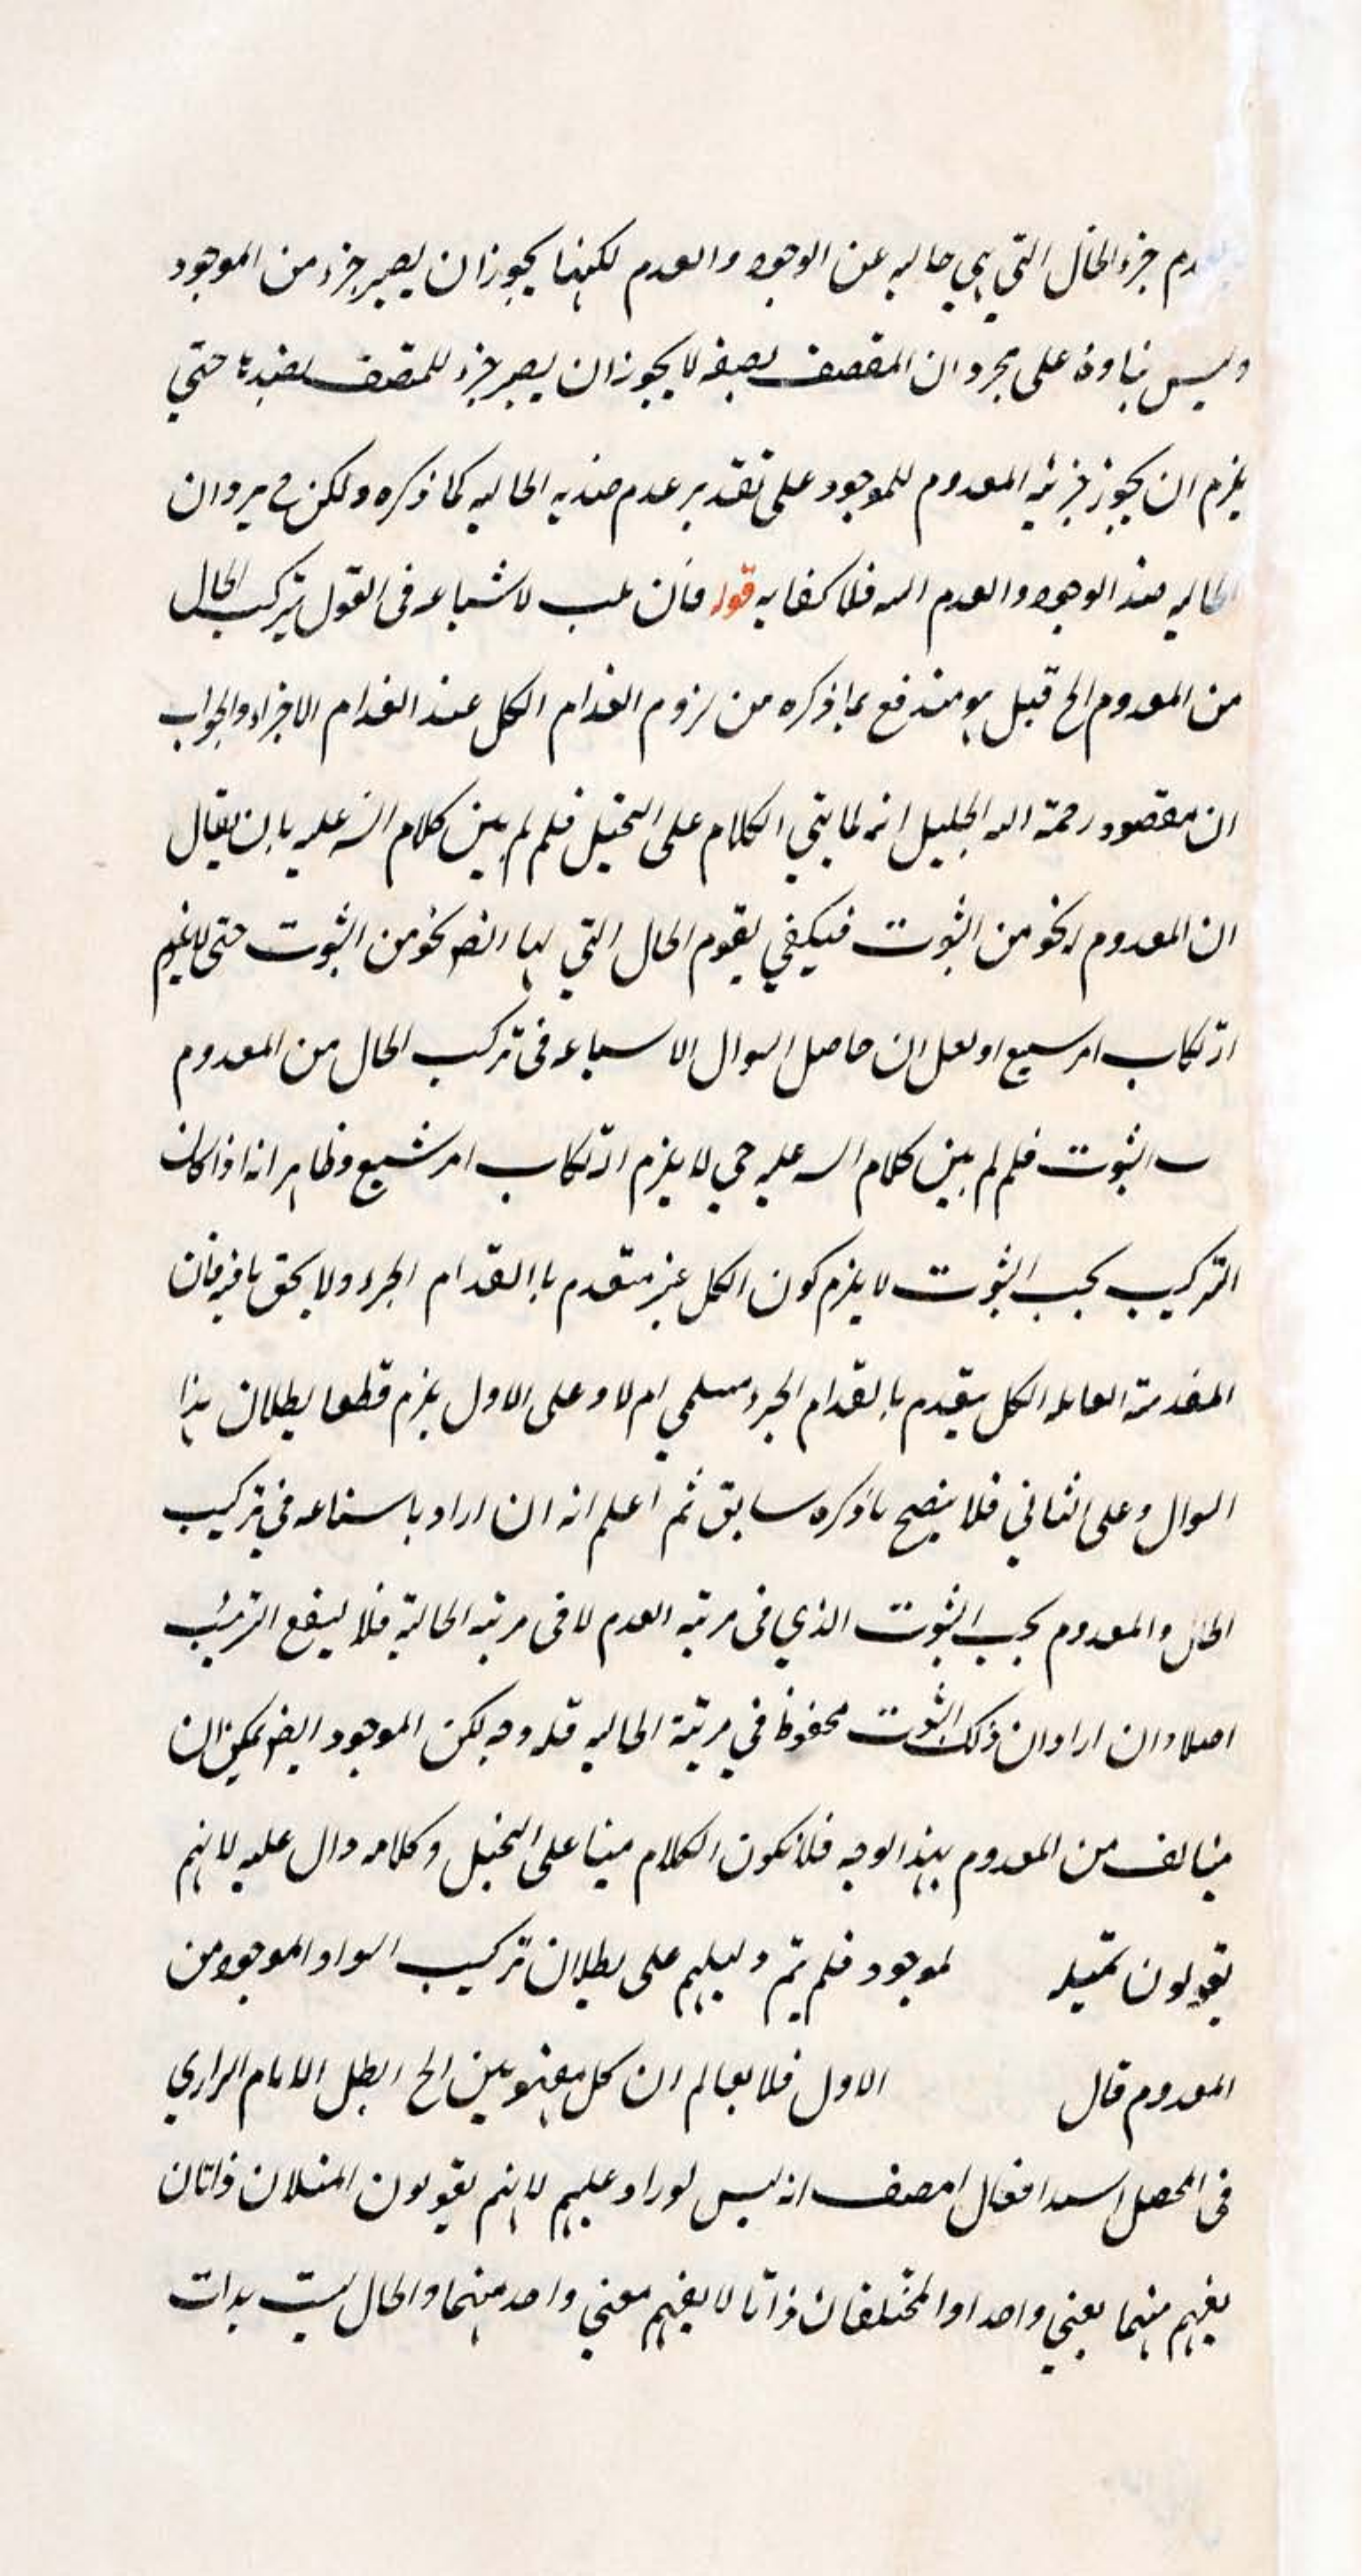 جزء الحال التي هي حاليه عن الوجود والعدم لكنها يجوز ان يصير جزء من الموجود
وليس بناوه على مجرد ان المتصف بصفه لا يجوز ان يصير جزء للمتصف بضدها حتى
يلزم ان يجوز جزئيه المعدوم للموجود على تقدير عدم ضديه الحاليه كما ذكره ولكن ح يرد ان
الحاليه ضد الوجود والعدم فلا كفايه قوله فان لا في القول بتركب الحال
من المعدوم الخ قيل هو مندفع بما ذكره من لزوم انعدام الكل عند انعدام الاجزاء والجواب
ان مقصود رحمة الله الجليل انه لما بني الكلام على التخيل فلم لم يبن كلام عليه بان يقال
ان المعدوم نحو من الثبوت فيكفي لقوم الحال التي لها ايضا نحو من الثبوت حتى لا يلزم
ارتكاب امر او لعل ان حاصل السوال في تركب الحال من المعدوم
الثبوت فلم لم يبن كلام عليه حتى لا يلزم ارتكاب امر شنيع وظاهر انه اذا كان
التركيب بحسب الثبوت لا يلزم كون الكل غير متقدم باانعدام الجزء ولا يحق ما فيه فان
المقدمة القايله الكل ينعدم بانعدام الجزء مسلمي ام لا وعلى الاول يلزم قطعا بطلان هذا
السوال وعلى الثاني فلا يصح ما ذكره سابق ثم اعلم انه ان اراد في تركيب
الحال والمعدوم بحسب الثبوت الذي في مرتبه العدم لا في مرتبه الحالية فلا ينفع الترتب
اصلا وان اراد ان ذلك الثبوت محفوظ في مرتبة الحاليه فله وجه لكن الموجود ايضا يمكن ان
يتالف من المعدوم بهذا الوجه فلا تكون الكلام مبنيا على التخيل وكلامه دال عليه لانهم
يقولون لموجود فلم يتم دليلهم على بطلان تركيب السواد الموجود من
المعدوم قال الاول فلا ان كل مفهومين الخ ابطل الامام الرازي
في المحصل ليس لوراد عليهم لانهم يقولون المثلان ذاتان
يفهم منهما بعني واحد او المختلفان ذاتا لا يفهم معني واحد منهما والحال ليست بذات